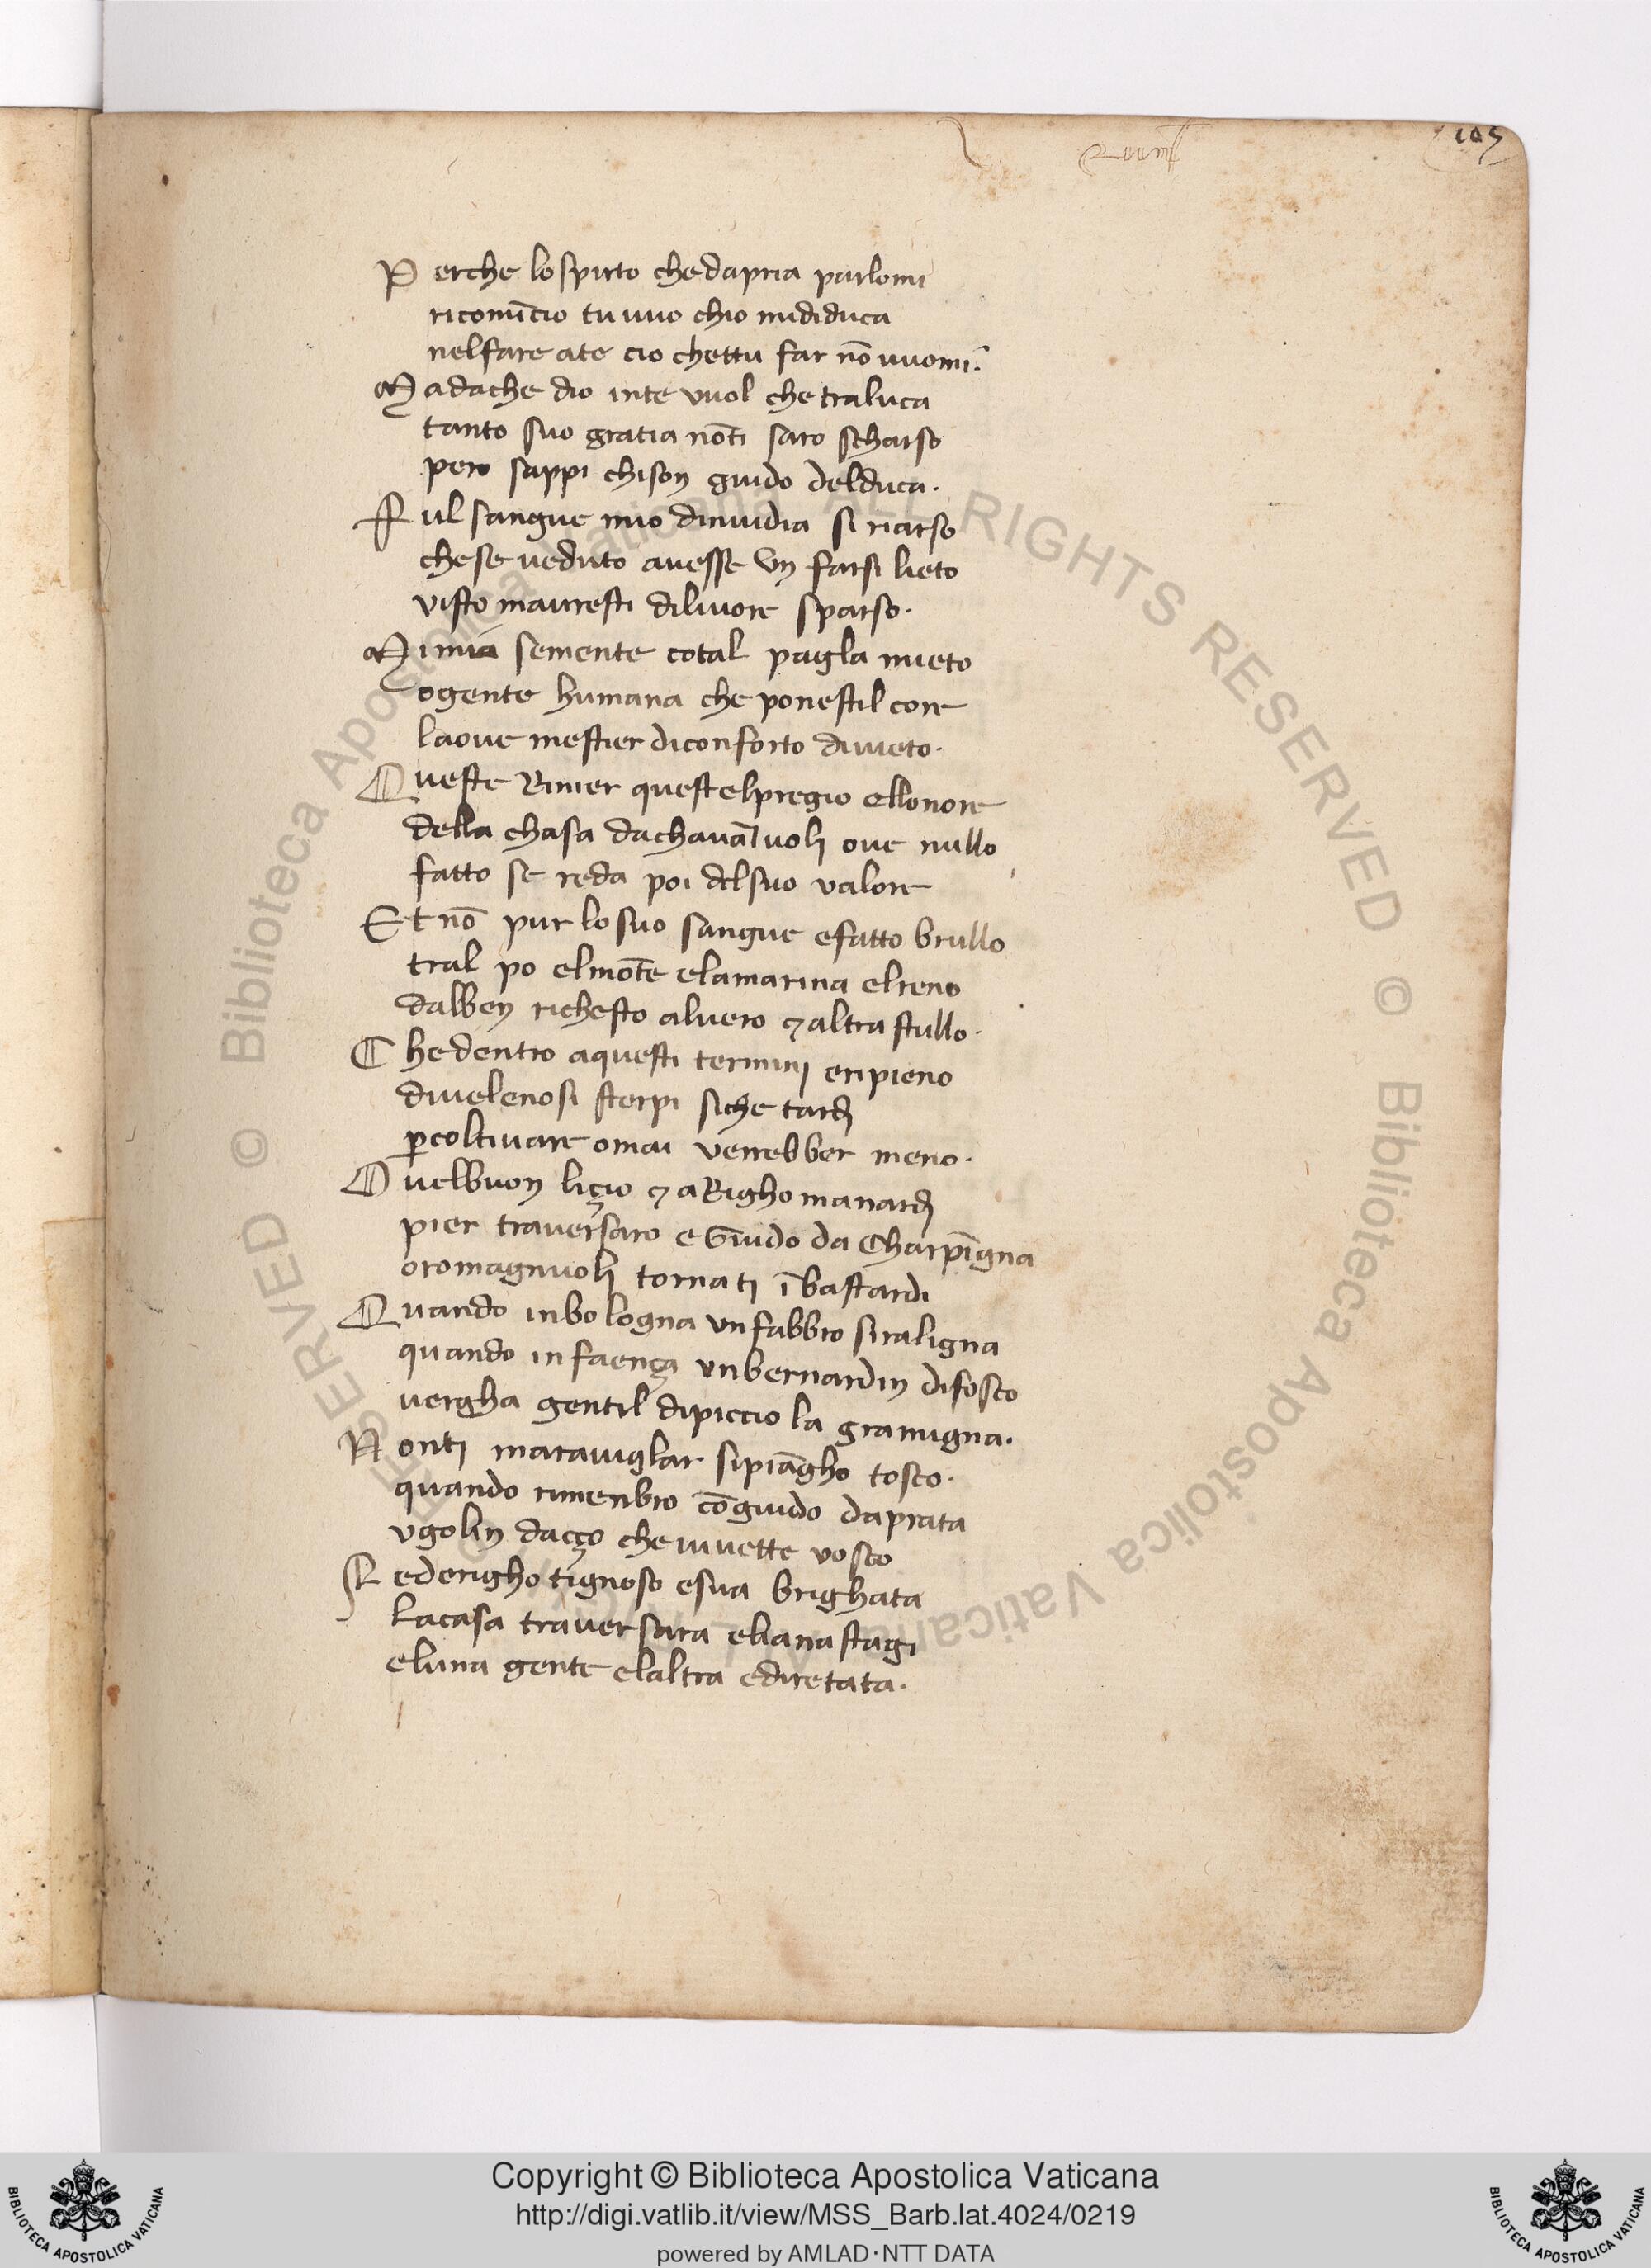 105
Perche lo spirto chedapria parlomi
ricomīcio tu vuo chio mididuca
nelfare ate cio chettu far nō vuomi.
Madache dio inte vuol che traluca
tanto suo gratia nōti saro scharso
pero sappi chison guido delduca.
Ful sangue mio dinuidia si riarso
chese veduto auesse vn farsi lieto
visto mauresti diliuore sparso.
Di mia semente cotal pagla mieto
ogente humana che ponestil core
laoue mestier diconforto diuieto.
Queste Rinier questelpregio ellonore
della chasa dachauāl voli oue nullo
fatto se reda poi del suo valore
Et nō pur lo suo sangue efatto brullo
tral po elmōte elamarina elreno
dalben richesto aluero ⁊ altrastullo.
Che dentro aquesti termini eripieno
diuelenosi sterpi siche tardi
ꝑcoltiuare omai verrebber meno.
Quelbuon liçio ⁊ aRigho manardi
pier trauersaro e Guido da Charpīgna
oromagnuoli tornati ī bastardi
Quando inbologna vnfabbro siraligna
quando infaença vnbernardin difosco
vergha gentil dipiccio la gramigna.
Nonti marauiglar sipiāgho tosco.
quando rimenbro cōguido daprata
vgolin daçço che viuette vosco
Federigho tignoso esua brighata
lacasa trauersara elianastagi
eluna gente elaltra ediretata.
© Biblioteca Apostolica Vaticana ALL RIGHTS RESERVED
© Biblioteca Apostolica Vaticana ALL RIGHTS RESERVED
Copyright © Biblioteca Apostolica Vaticana
http://digi.vatlib.it/view/MSS_Barb.lat.4024/0219
powered by AMLAD·NTT DATA
BIBLIOTECA APOSTOLICA VATICANA
BIBLIOTECA APOSTOLICA VATICANA